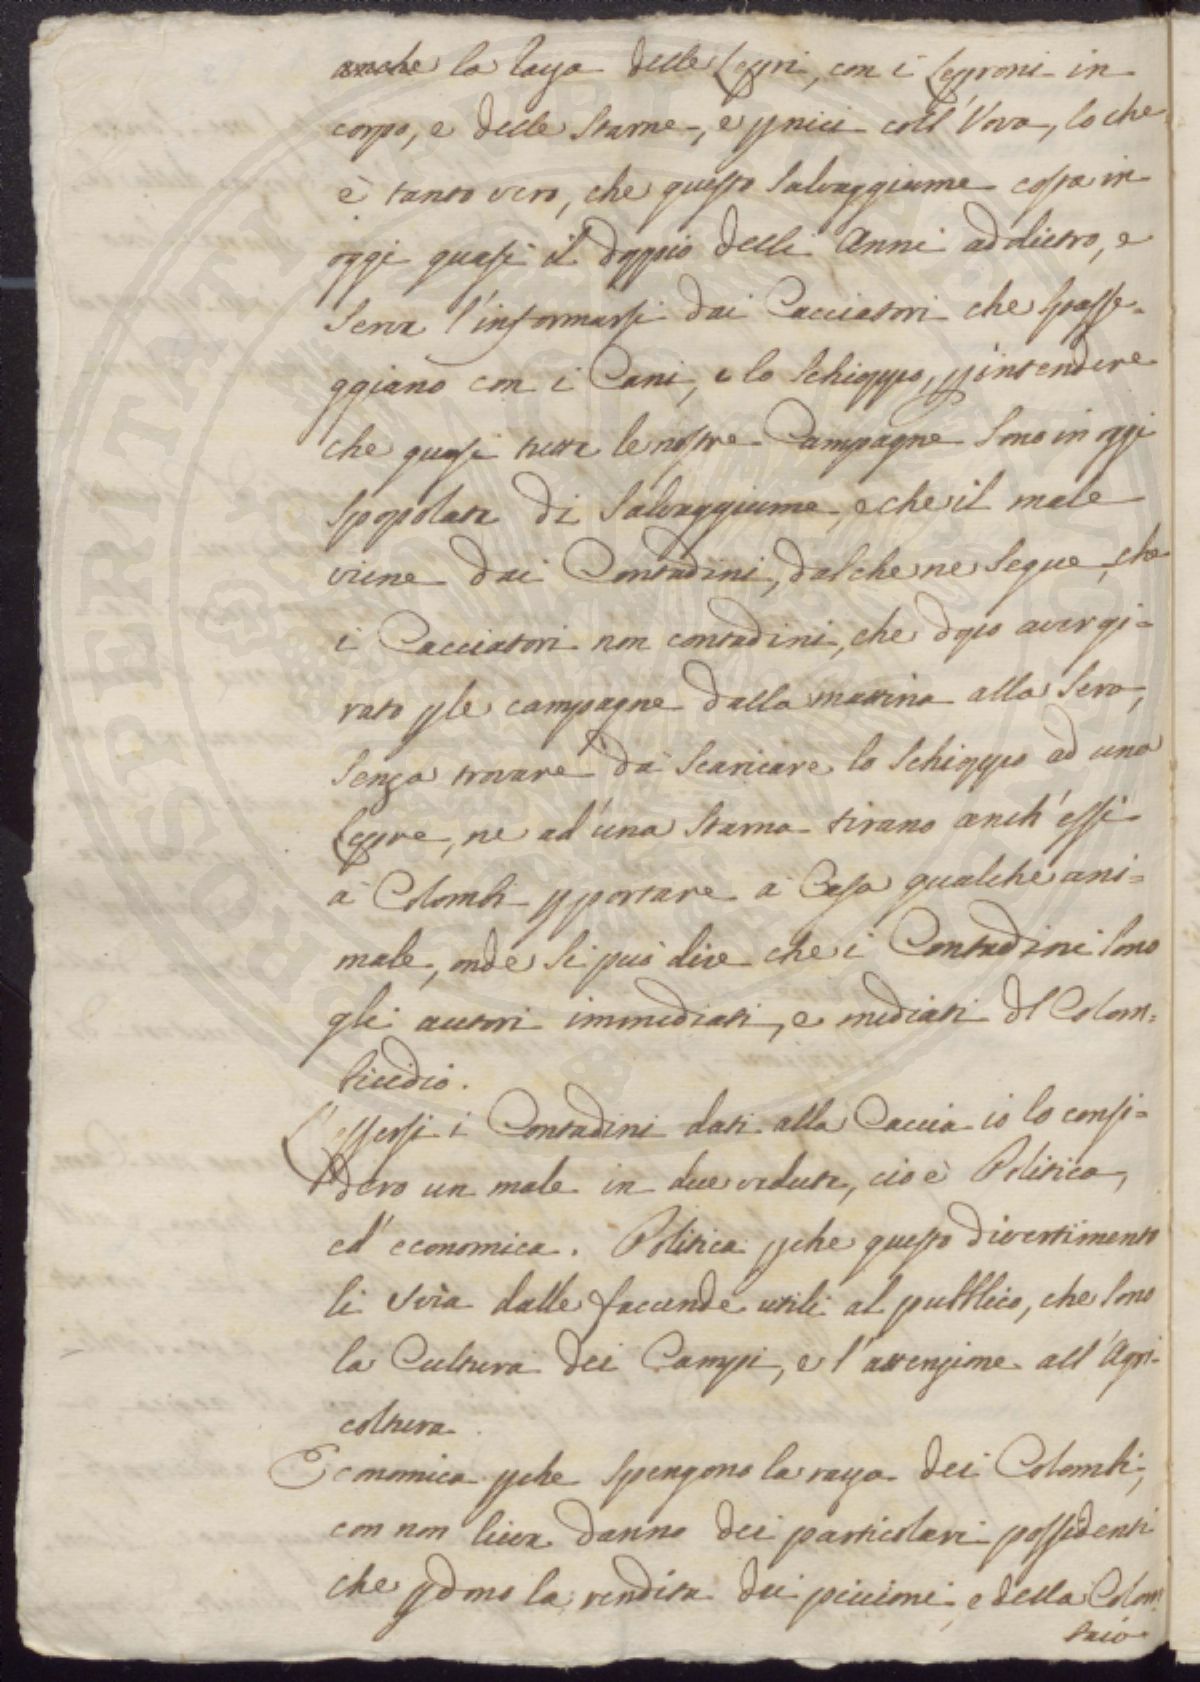 anche la razza delle Lepri, con i Leproni in
corpo, e delle Starne, e pernici coll'Vova, lo che
è tanto vero, che questo Salvaggiume costa in
oggi quasi il doppio delli Anni addietro, e
Serva l'informarsi dai Cacciatori che spasse-
ggiano con i Cani, e lo Schioppo, p intendere
che quasi tutte le nostre Campagne Sono in oggi
Spopolate di Salvaggiume, e che il male
viene dai Contadini, dal che ne Segue, che
i Cacciatori non contadini, che dopo aver gi=
rato p le campagne dalla mattina alla Sera,
Senza trovare da Scaricare lo Schioppo ad una
Lepre, ne ad'una Starna tirano anch'essi
à Colombi p portare à Casa qualche ani=
male, onde Si può dire che i Contadini Sono
gli autori immediati, e mediati dl Colom=
bicidio.
L'essersi i Contadini dati alla Caccia io lo consi=
dero un male in due vedute, cio è Politica,
ed' economica. Politica pche questo divertimento
li Svia dalle faccende utili al pubblico, che Sono
la Cultura dei Campi, e l'attenzione all'Agri-
coltura.
Economica pche Spengono la razza dei Colombi,
con non lieve danno dei particolari possidenti
che pdono la rendita dei piccioni, e della Colom
baio